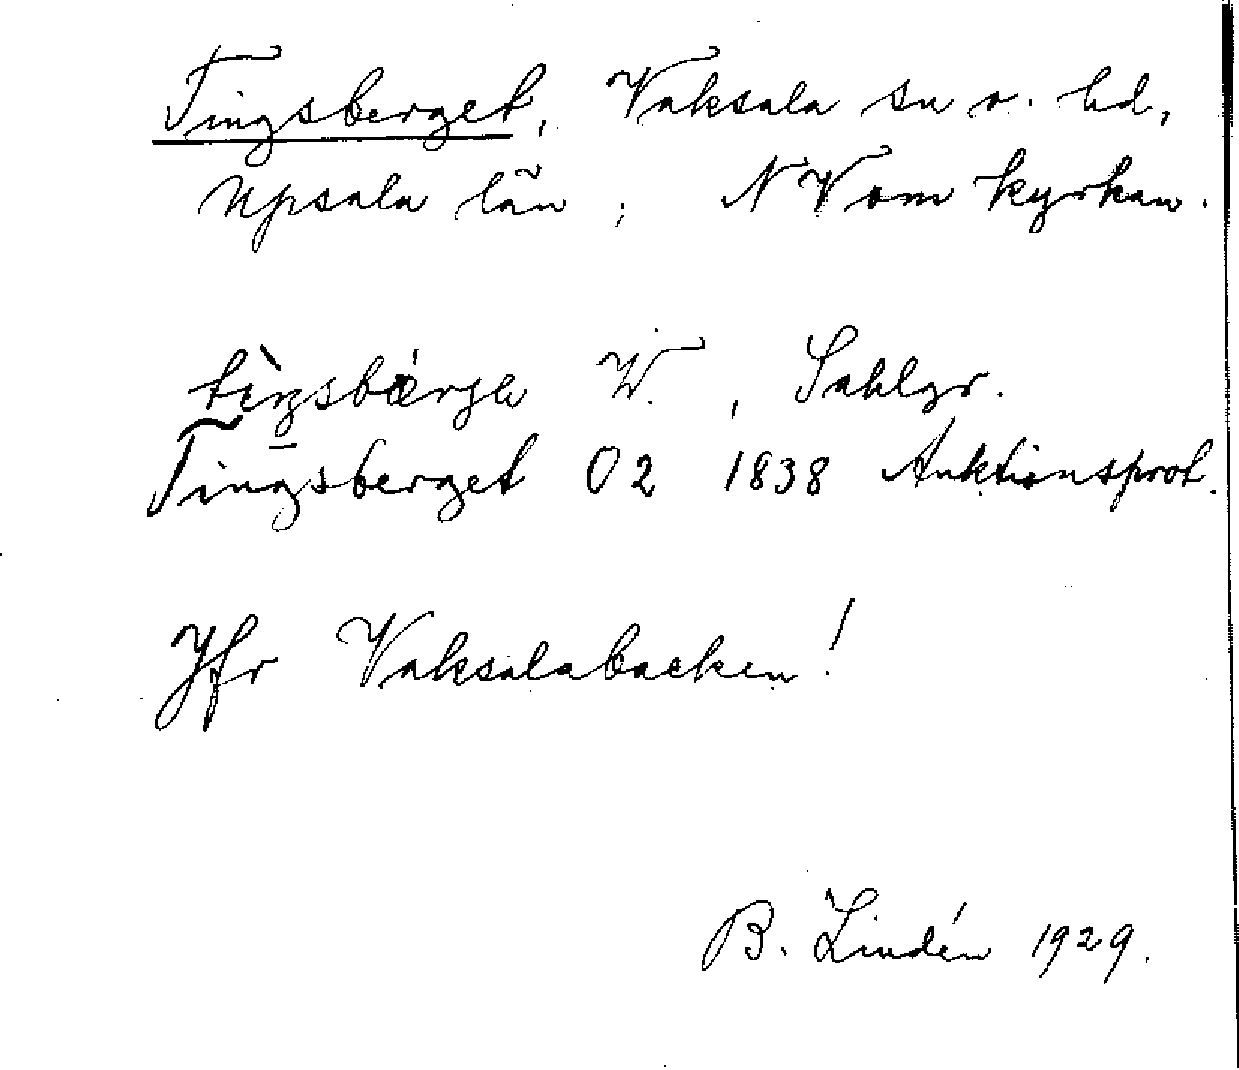 Tingsberget, Vaksala sn o. hd,
Upsala län; NV om kyrkan.
W., Sahlgr.
Tingsberget O2 1838 Auktionsprot.
Jfr Vaksalabacken!
B. Lindén 1929.